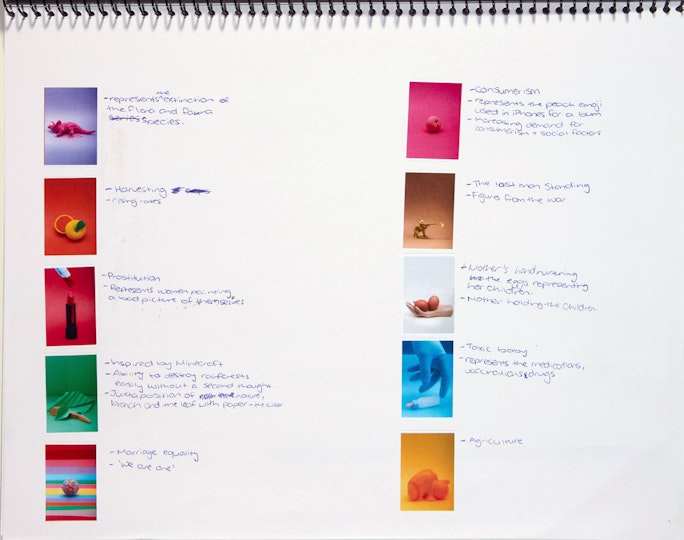 the
- represents extinction of
the Flora and Fauna
series species.
- Harvesting
- rising rates
- Prostitution
- Represents women painting
a bad picture of themselves
- Inspired by Minecraft
- Ability to destroy rainforests
easily without a second thought.
- Juxtaposition of nature,
branch and the leaf with paper - the
- Marriage equality
- 'We are one'
- Consumerism
- represents the peach emoji
used in iPhones for a bum
- Increasing demand for
consumerism + social factors
- The last man standing
- Figures from the war
- Mother's hand nurturing
the eggs representing
her children.
- Mother holding the children.
- Toxic baby
- represents the medications,
vaccinations, drugs
- Agriculture